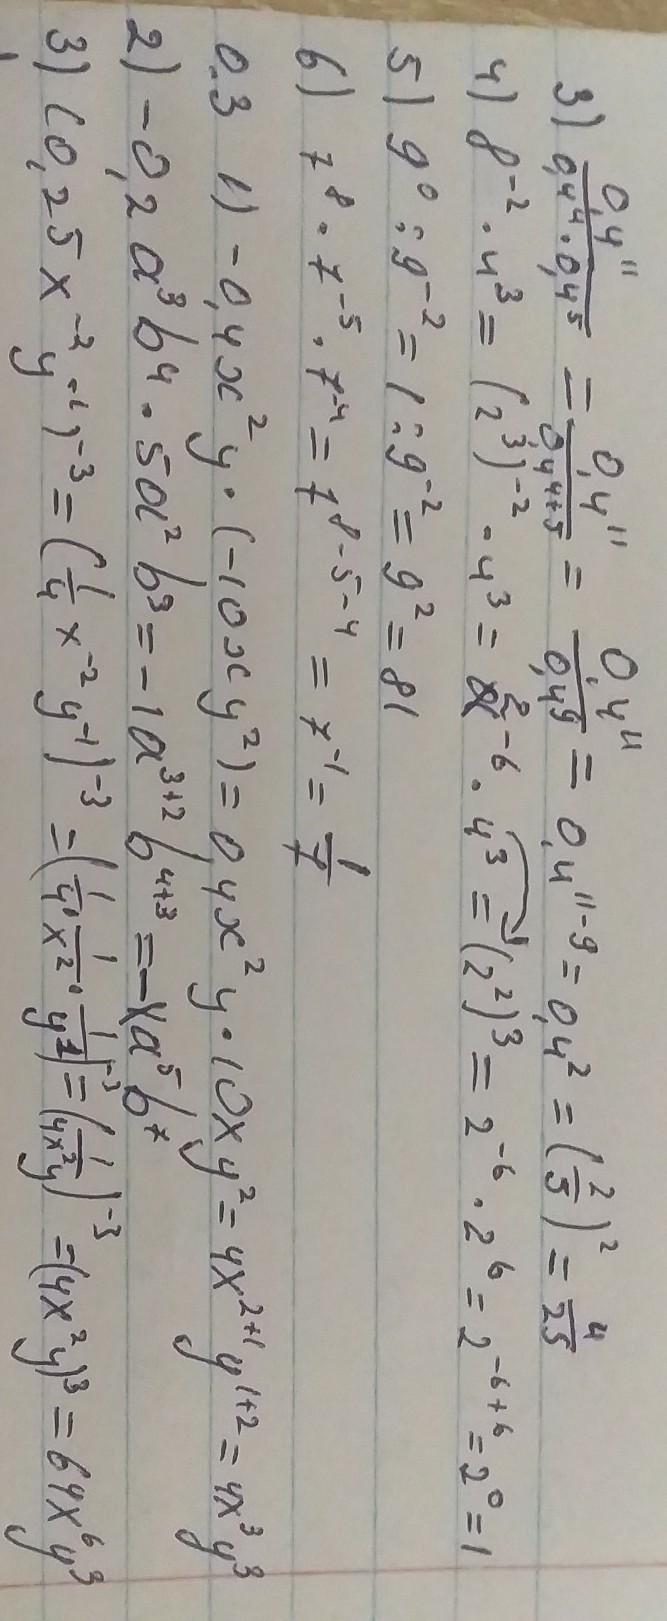 3) 0,4¹¹/(0,4⁴·0,4⁵) = 0,4¹¹/0,4⁴⁺⁵ = 0,4¹¹/0,4⁹ = 0,4¹¹⁻⁹ = 0,4² = (2/5)² = 4/25
4) 8⁻²·4³ = (2³)⁻²·4³ = 2⁻⁶·4³ = (2²)³ = 2⁻⁶·2⁶ = 2⁻⁶⁺⁶ = 2⁰ = 1
5) 9⁰:9⁻² = 1:9⁻² = 9² = 81
6) 7⁸·7⁻⁵·7⁻⁴ = 7⁸⁻⁵⁻⁴ = 7⁻¹ = 1/7
0.3 1) -0,4x²y·(-10xy²) = 0,4x²y·10xy² = 4x²⁺¹y¹⁺² = 4x³y³
2) -0,2a³b⁴·5a²b³ = -1a³⁺²b⁴⁺³ = -1a⁵b⁷
3) (0,25x⁻²y⁻¹)⁻³ = (1/4x⁻²y⁻¹)⁻³ = (1/4·1/x²·1/y¹)⁻³ = (1/4x²y)⁻³ = (4x²y)³ = 64x⁶y³